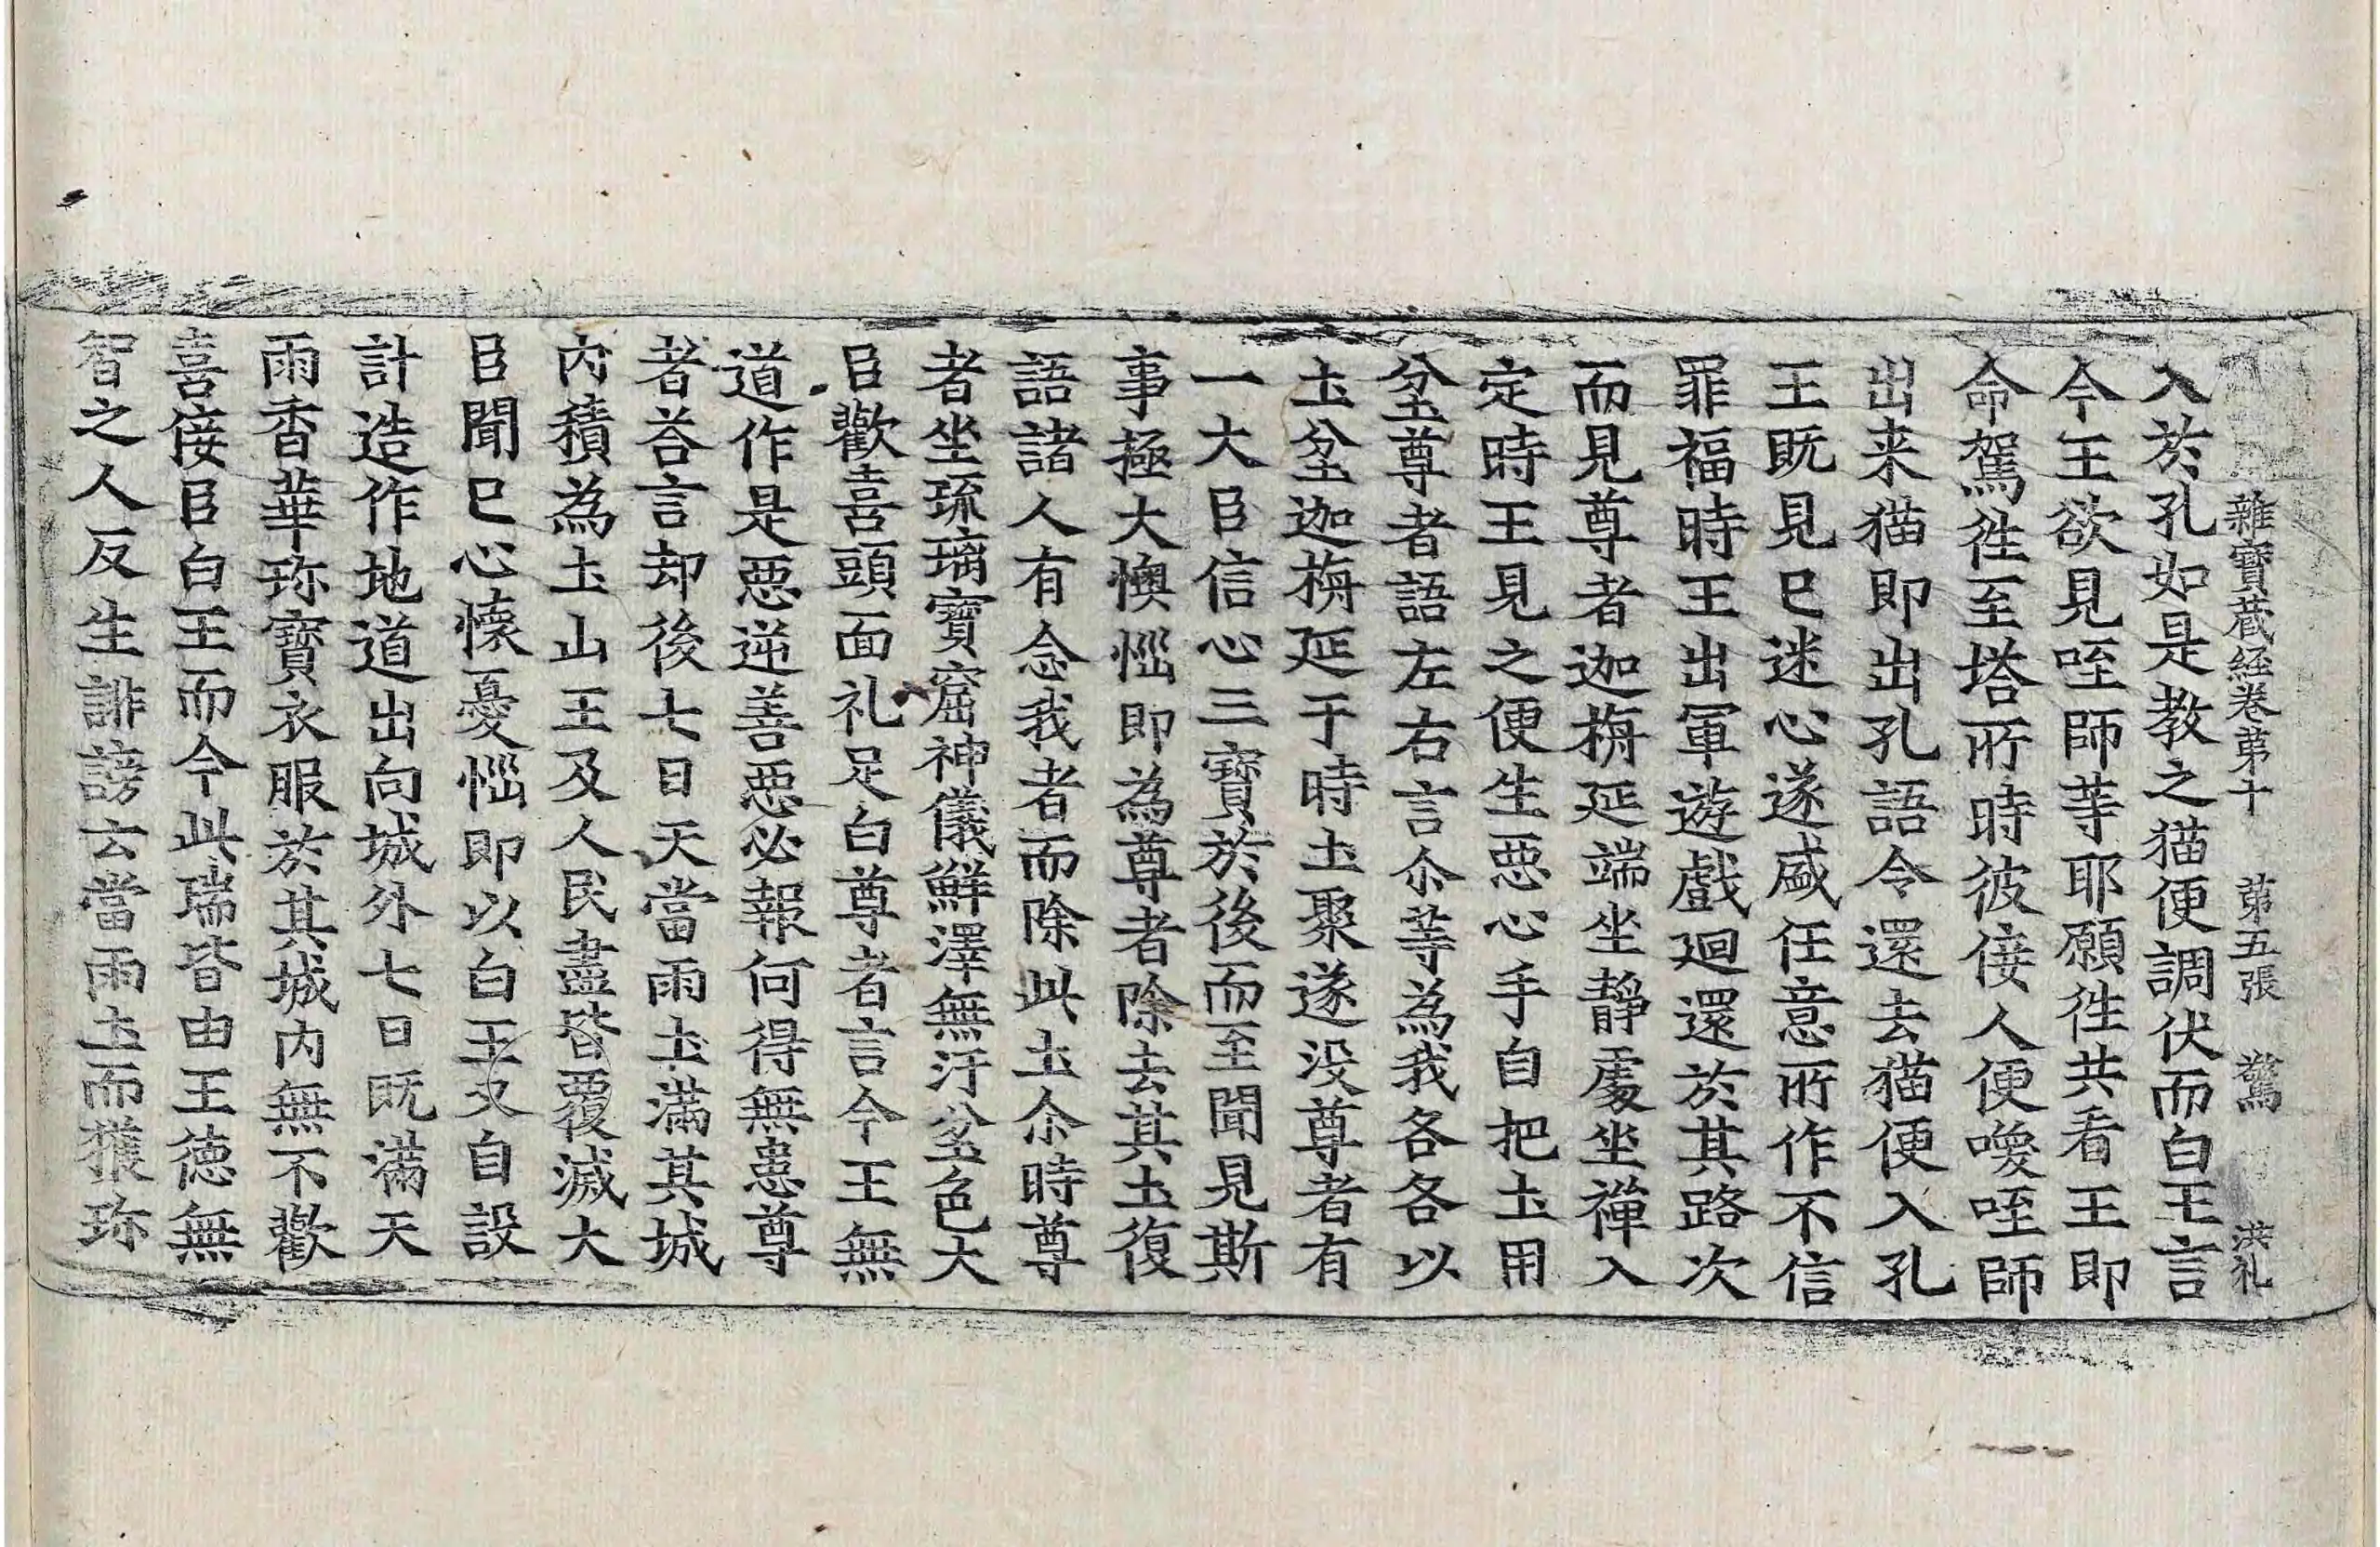 雜寶蔵經卷第十 第五張 驚 洪礼
入於孔如是教之猫便調伏而白王言
今王欲見咥師䓁耶願徃共看王即
命駕徃至塔所時彼佞人便喚咥師
出来猫即出孔語令還去猫便入孔
王既見已迷心遂盛任意所作不信
罪福時王出軍遊戲迴還於其路次
而見尊者迦栴延端坐靜處坐禪入
定時王見之便生惡心手自把土用
坌尊者語左右言尒等為我各各以
土坌迦栴延于時土聚遂没尊者有
一大臣信心三寶於後而至聞見斯
事極大懊惱即為尊者除去其土復
語諸人有念我者而除此土尒時尊
者坐琉璃寶窟神儀鮮澤無汙坌色大
臣歡喜頭面礼足白尊者言今王無
道作是惡逆善惡必報何得無患尊
者荅言却後七日天當雨土滿其城
内積為土山王及人民盡皆覆滅大
臣聞已心懷憂惱即以白王又自設
計造作地道出向城外七日既滿天
雨香華珎寶衣服於其城内無不歡
喜佞臣白王而今此瑞皆由王德無
智之人反生誹謗云當雨土而獲珎